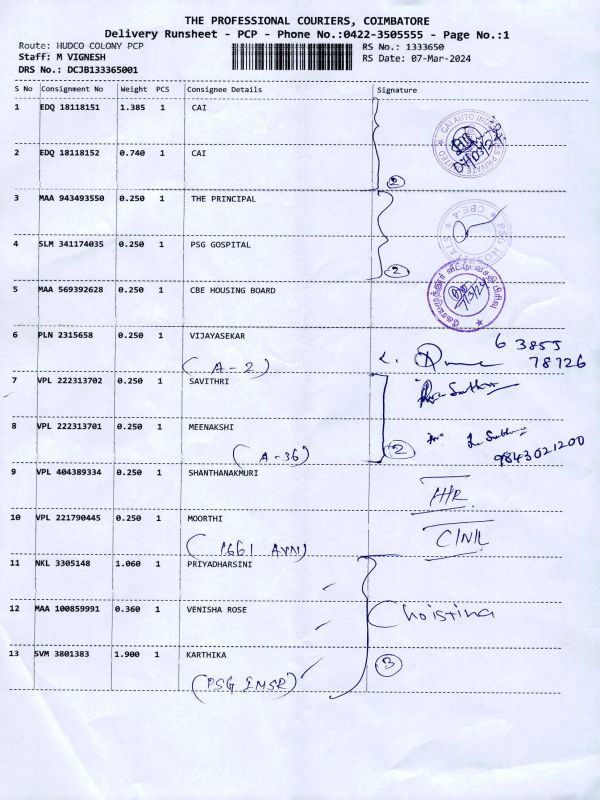 THE PROFESSIONAL COURIERS, COIMBATORE
Delivery Runsheet - PCP - Phone No.:0422-3505555 - Page No.:1
Route: HUDCO COLONY PCP RS No.: 1333650
Staff: M VIGNESH RS Date: 07-Mar-2024
DRS No.: DCJB133365001
S No Consignment No Weight PCS Consignee Details Signature
1 EDQ 18118151 1.385 1 CAI
2 EDQ 18118152 0.740 1 CAI
2
3 MAA 943493550 0.250 1 THE PRINCIPAL
4 SLM 341174035 0.250 1 PSG GOSPITAL
2
5 MAA 569392628 0.250 1 CBE HOUSING BOARD
6 PLN 2315658 0.250 1 VIJAYASEKAR
63855
78726
(A-2)
7 VPL 222313702 0.250 1 SAVITHRI
8 VPL 222313701 0.250 1 MEENAKSHI
(A-36) 2 9843021200
9 VPL 404389334 0.250 1 SHANTHANAKMURI
10 VPL 221790445 0.250 1 MOORTHI
11 NKL 3305148 1.060 1 PRIYADHARSINI
12 MAA 100859991 0.360 1 VENISHA ROSE
Christina
13 SVM 3801383 1.900 1 KARTHIKA
3
(PSG IMSR)